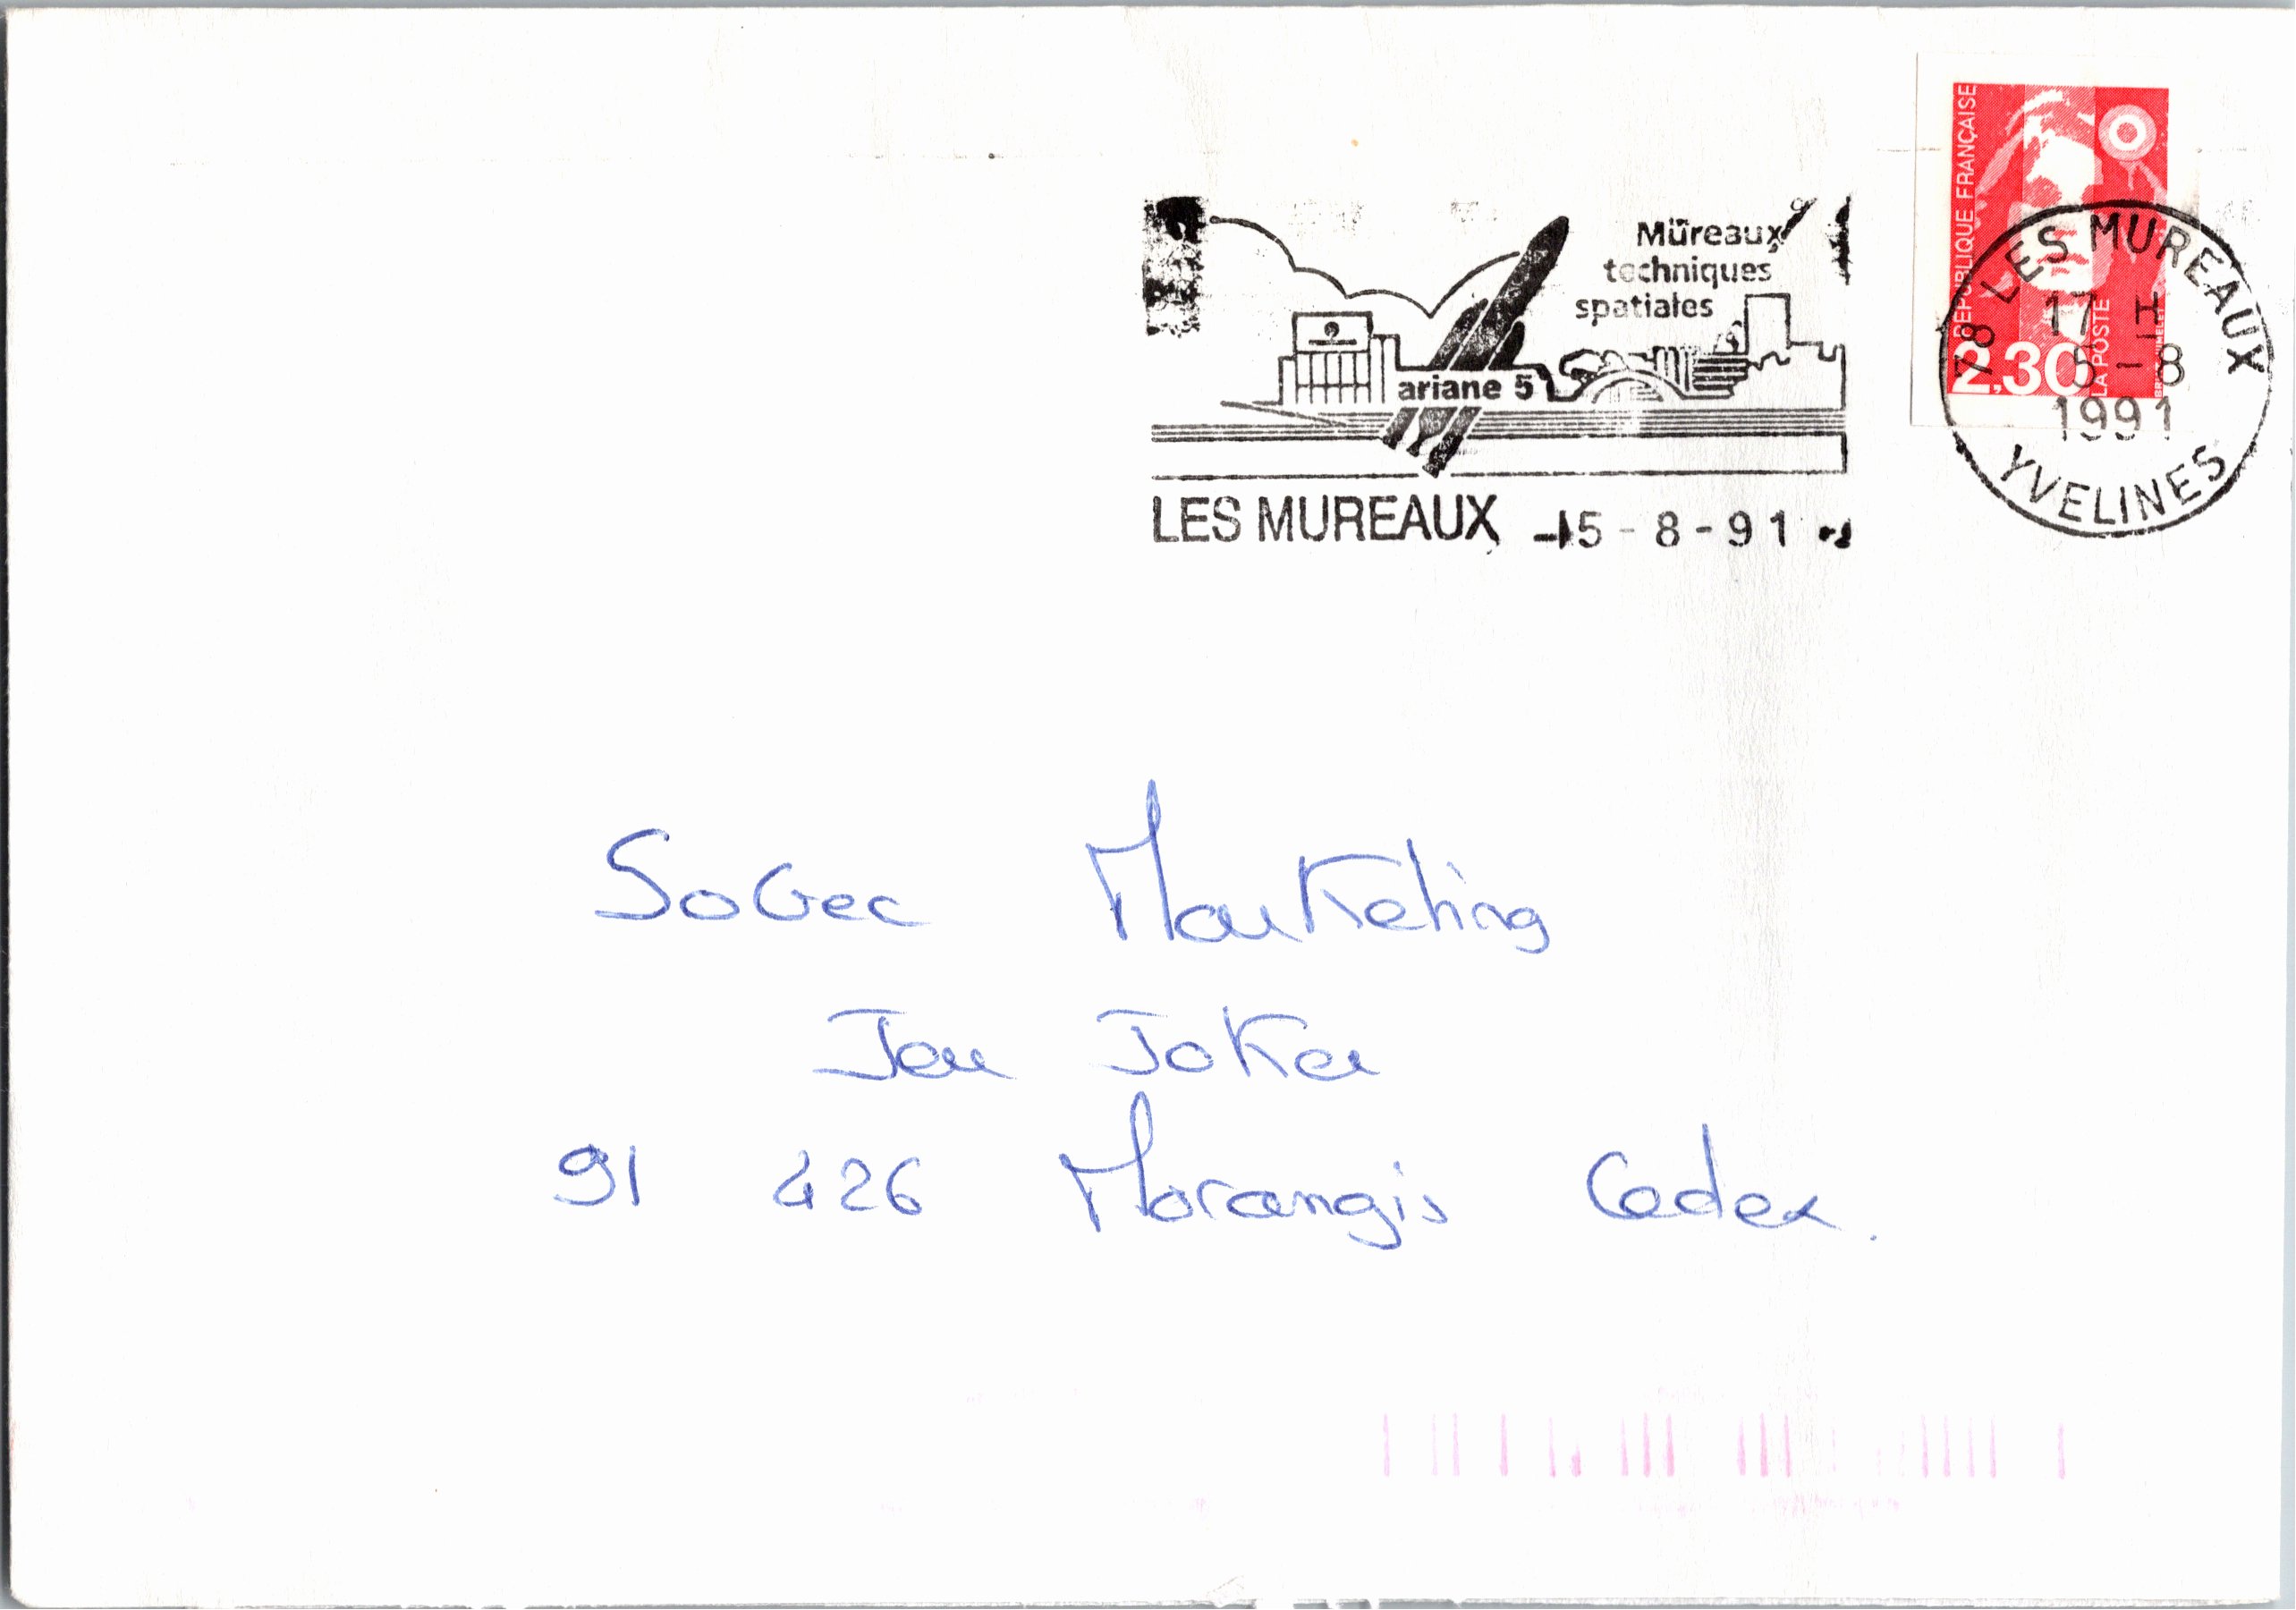 RÉPUBLIQUE FRANÇAISE
2,30
LA POSTE
78 LES MUREAUX
17 H
5 - 8
1991
YVELINES
Mureaux
techniques
spatiales
ariane 5
LES MUREAUX 5 - 8 - 91
SoGec Marketing
Jeu Joker
91 426 Morangis Cedex.